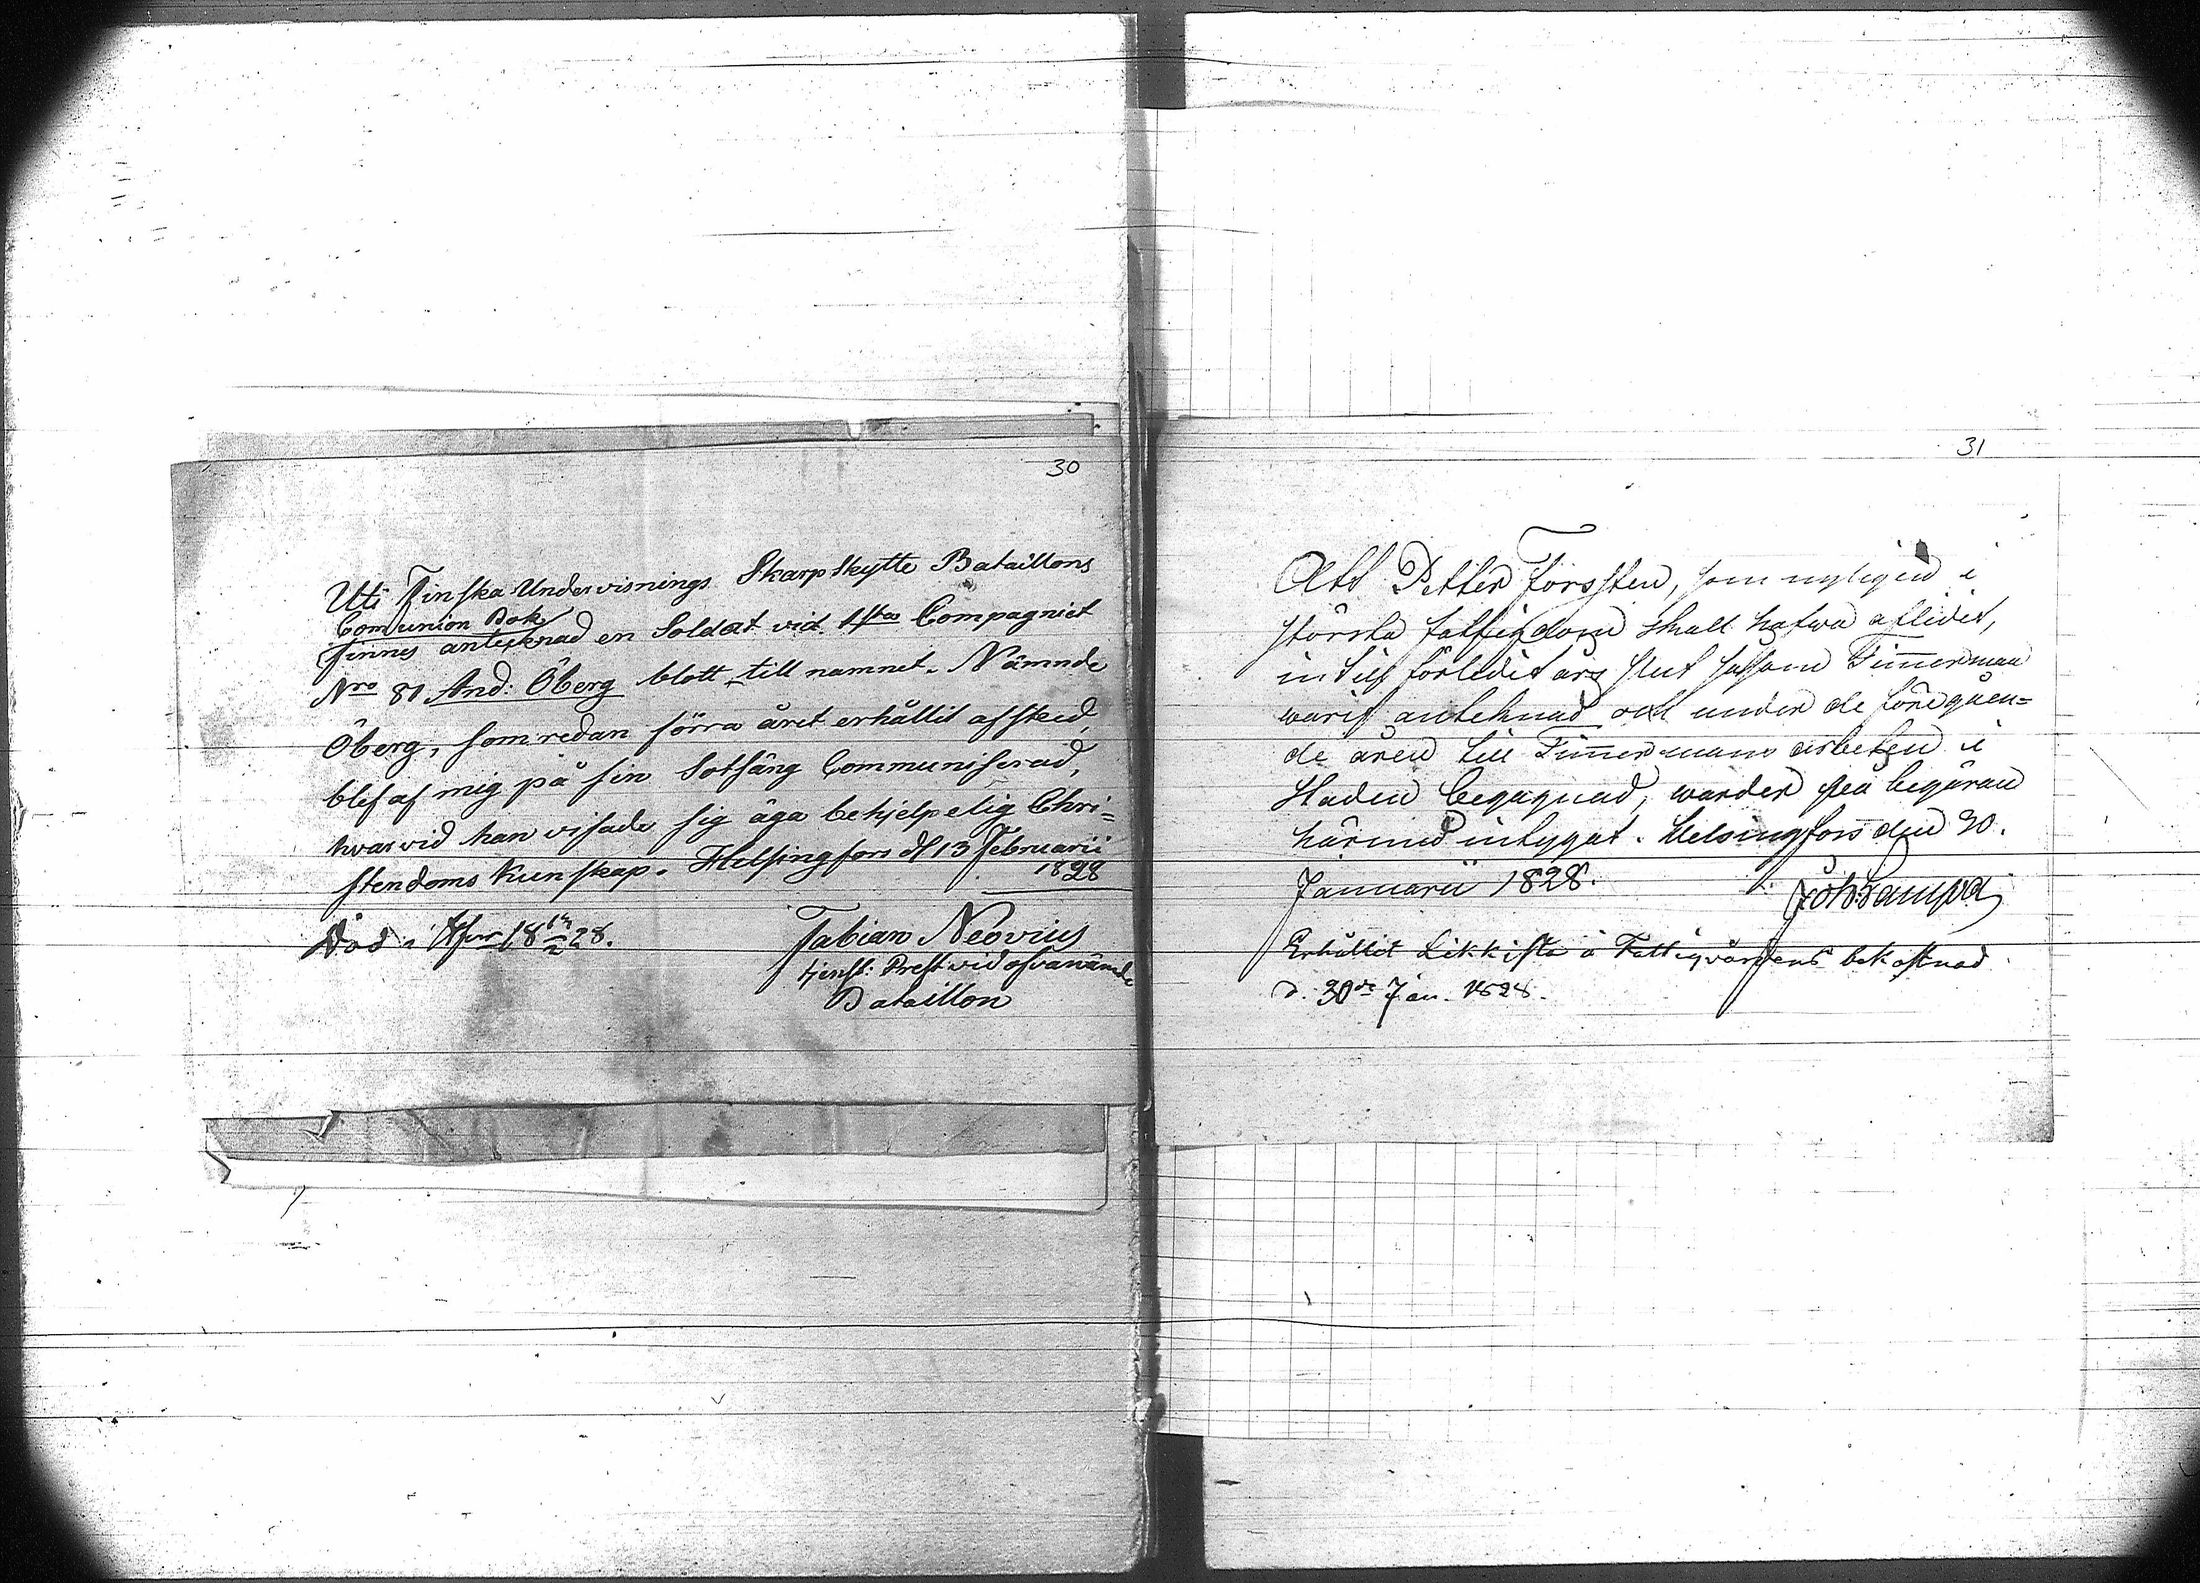 30
Uti Finska Undervisnings Skarpskytte Bataillons
Comunion Bok
finnes antecknad en Soldat vid 1sta Compagniet
Nro 81 And: Öberg blott till namnet. Nämnde
Öberg, som redan förra året erhållit afsked,
blef af mig på sin Sotsäng Communiserad,
hvarvid han visade sig äga behjelpelig Chri=
stendoms kunskap. Helsingfors d 13 Februarii
1828
Fabian Neovius
tjenst: Prest vid ofvannämde
Bataillon
Död i 18 12/2 28.
31
Att Petter Forssten, som nyligen i
största fattigdom skall hafwa aflidit,
intill förledit års slut såsom Timmerman
warit anteknad och under de föregåen=
de åren till Timmermans arbeten i
Staden begagnad, warder på begäran
härmed intygat. Helsingfors den 30.
Januarii 1828.
Erhållit Likkista å Fattigvårdens bekostnad
d. 30de Jan. 1828.